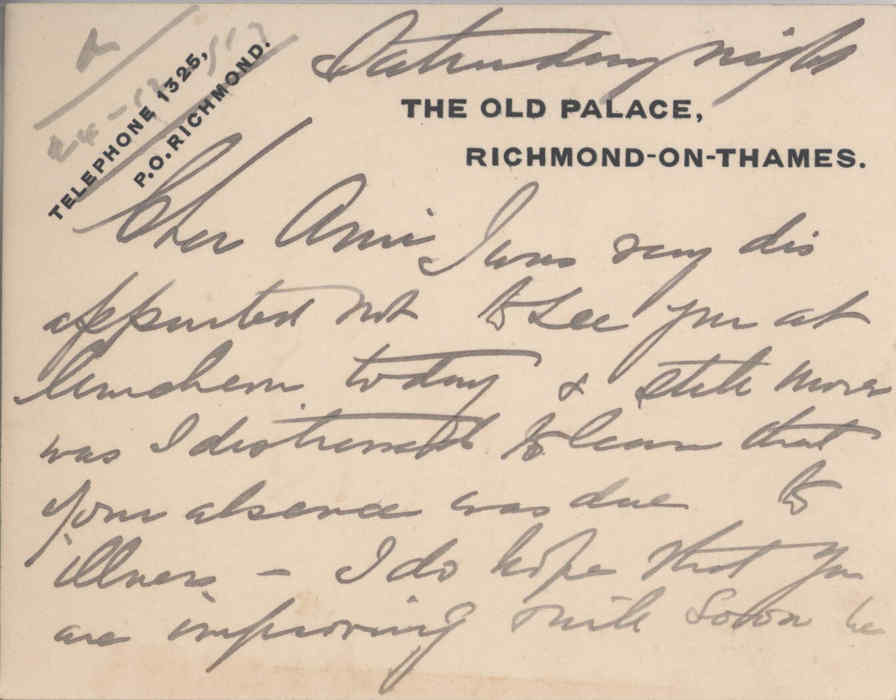 TELEPHONE 1325,
P.O. RICHMOND.
Saturday night
THE OLD PALACE,
RICHMOND-ON-THAMES.
Cher Ami I was very dis
appointed not to see you at
luncheon today & still more
was I distressed to learn that
your absence was due to
illness – I do hope that you
are improving & will soon be